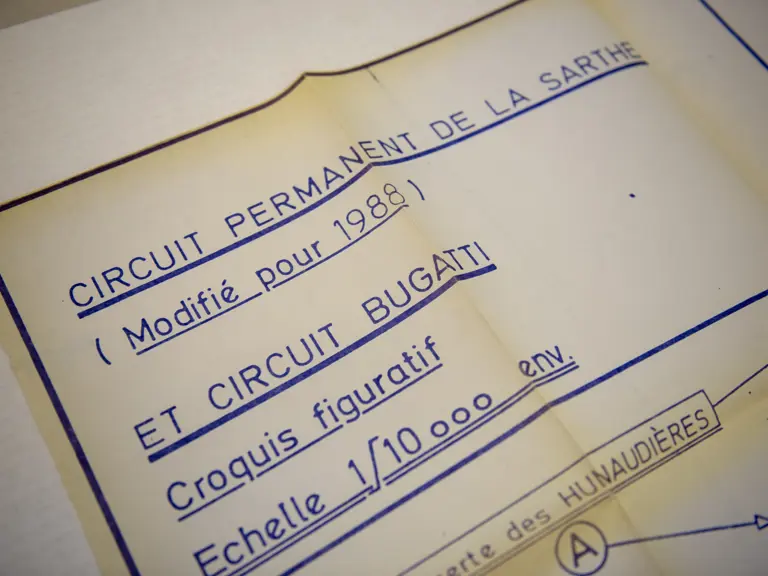 CIRCUIT PERMANENT DE LA SARTHE
( Modifié pour 1988 )
ET CIRCUIT BUGATTI
Croquis figuratif
Echelle 1/10 000 env.
des HUNAUDIÈRES
A